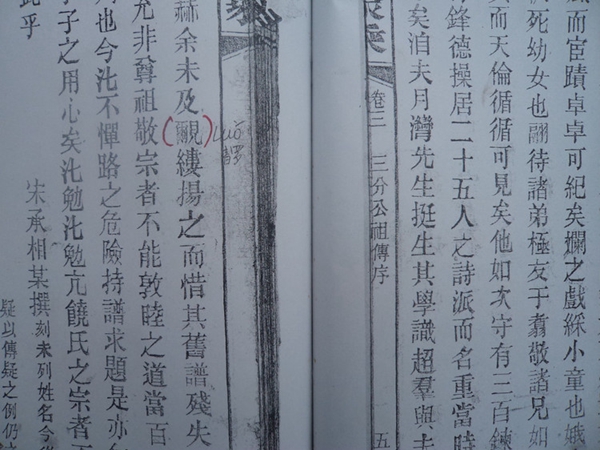 而宦蹟卓卓可紀矣斕之戲綵小童也娥
死幼女也翩待諸弟極友于翥敬諸兄如
而天倫循循可見矣他如次守有三百鍊
鋒德操居二十五人之詩派而名重當時
矣洎夫月灣先生挺生其學識超羣與夫
卷三 三分公祖傳序 五
赫余未及(覼)縷揚之而惜其舊譜殘失
luó
允非尊祖敬宗者不能敦睦之道當百
也今不憚路之危險持譜求題是亦
子之用心矣勉勉亢饒氏之宗者
此乎
宋承相某撰刻未列姓名今
疑以傳疑之例仍